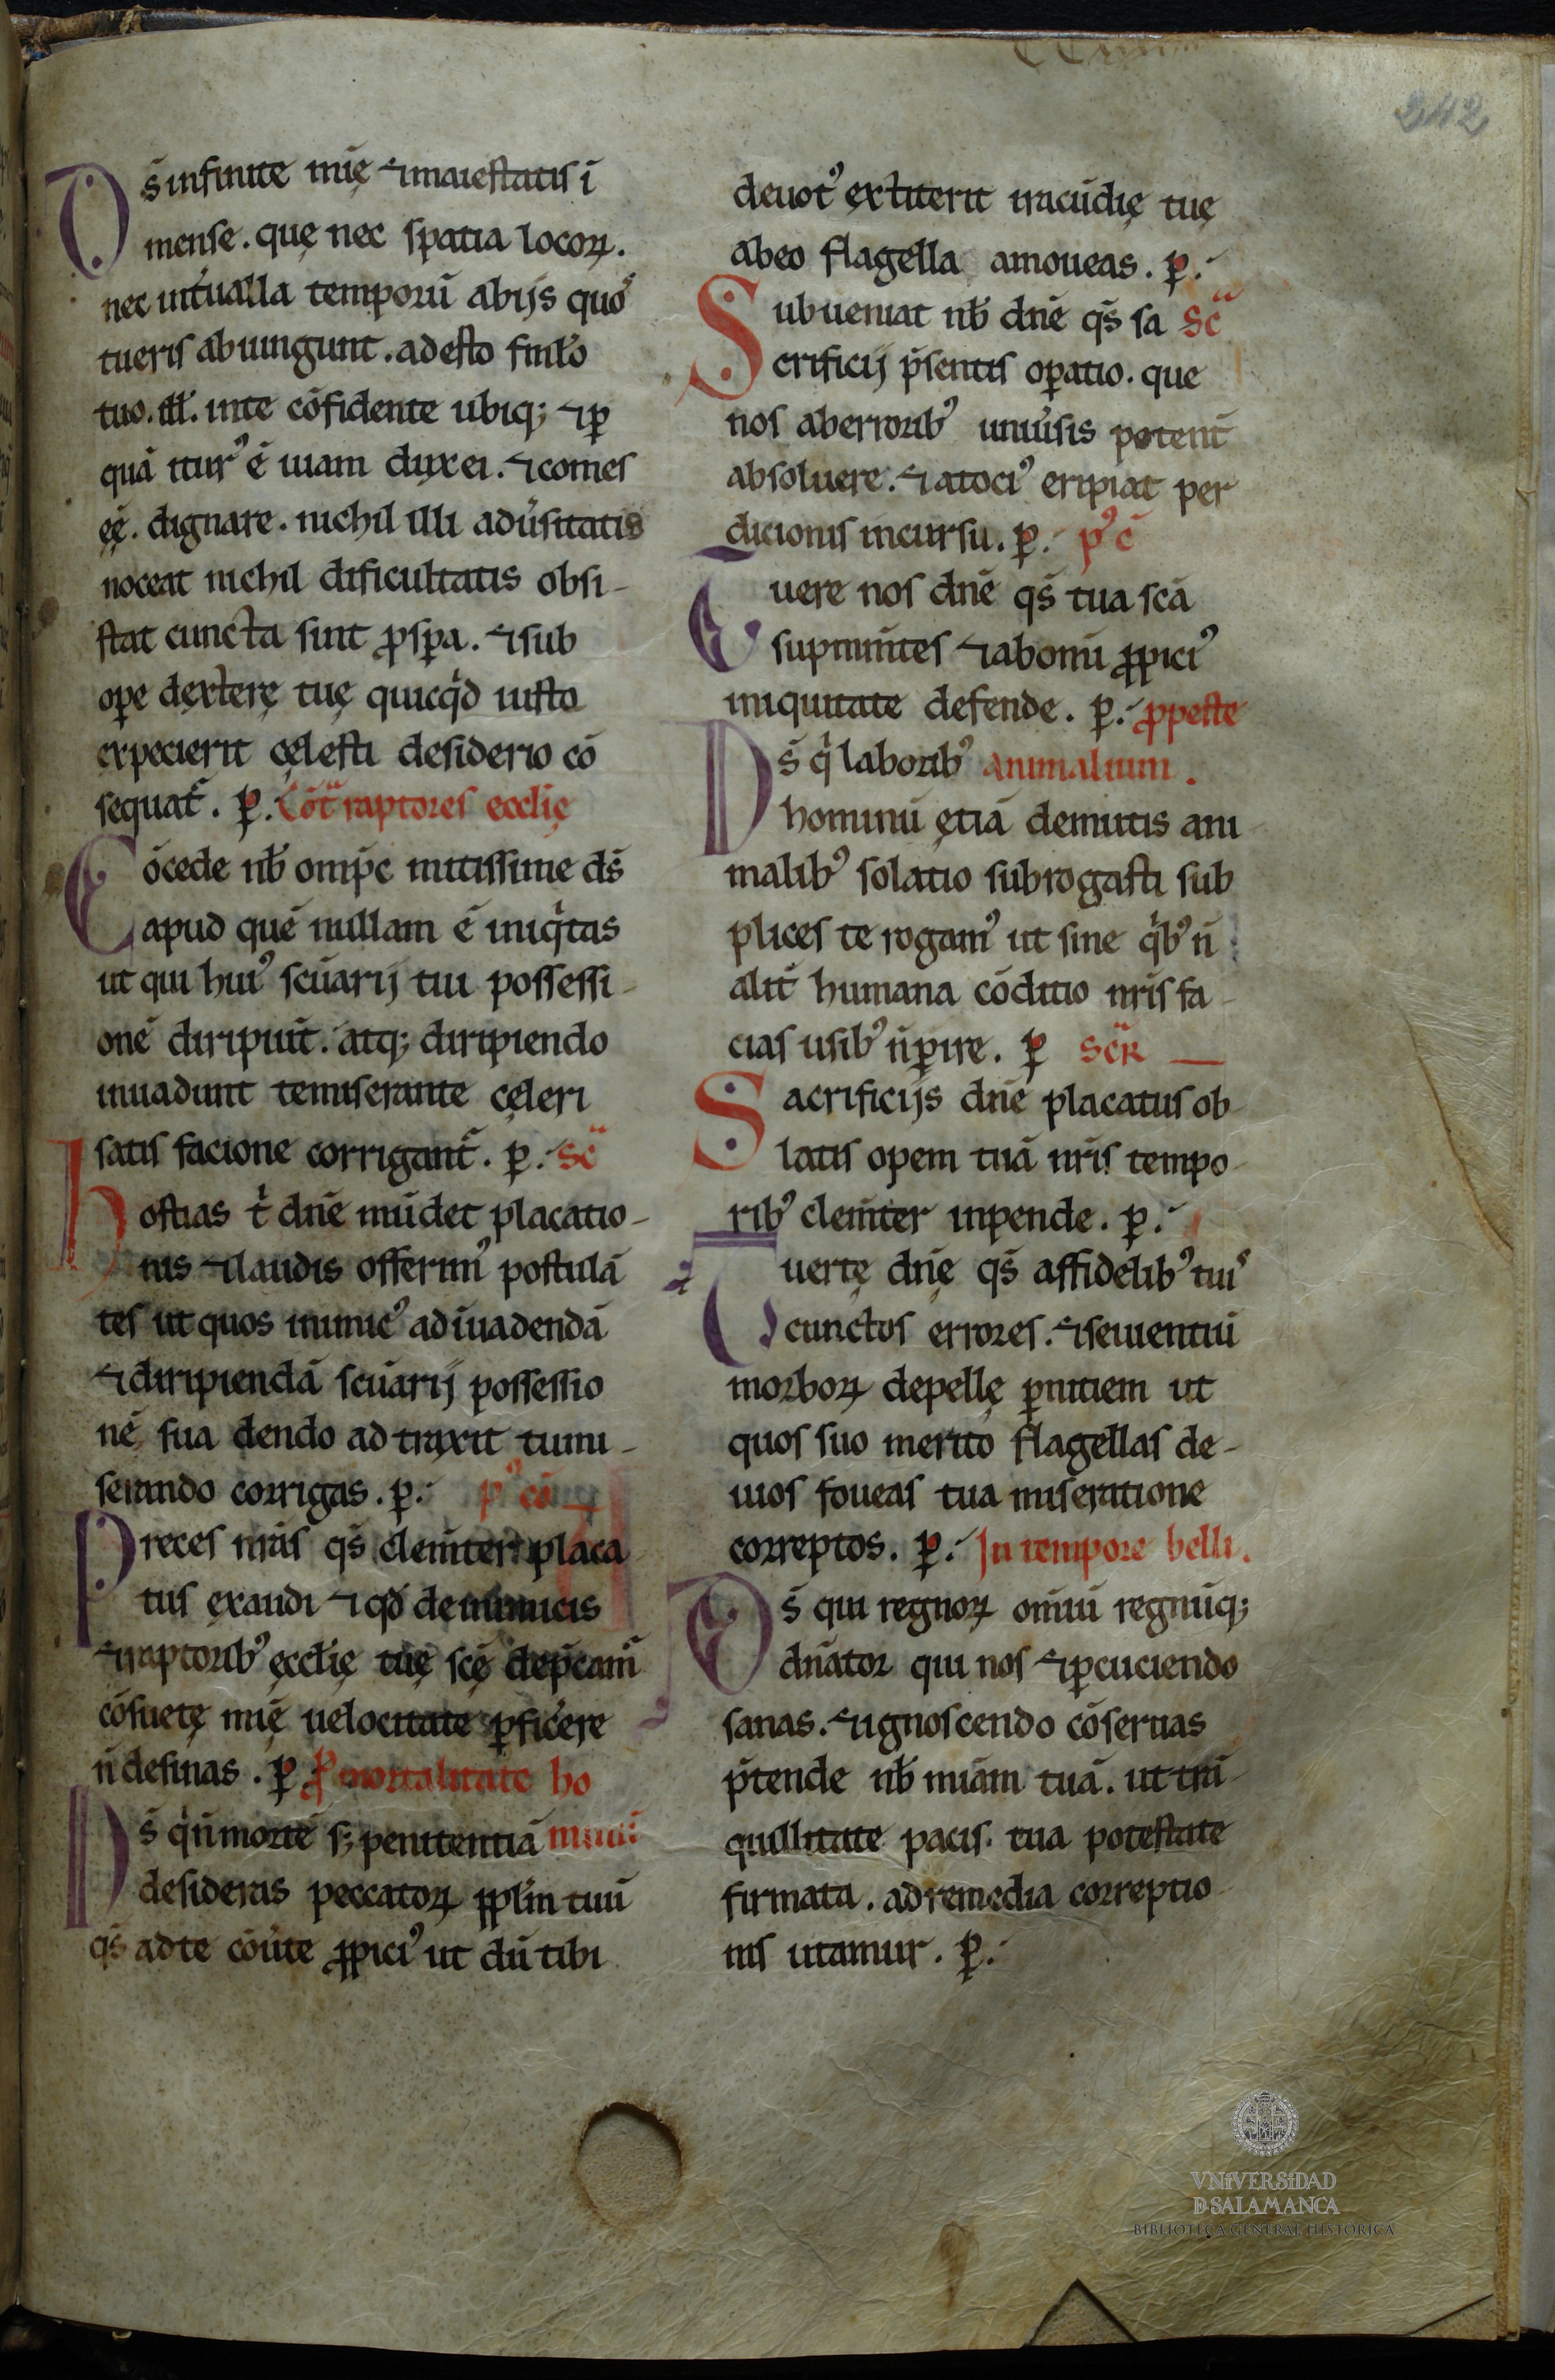 242
Ds̄ infinite mīę ⁊ maiestatis ī
mense. quę nec spatia locoꝝ.
nec int̄ualla temporū abijs quoˢ
tueris abiungunt. adesto fml̄o
tuo. ill̄. inte cōfidente ubiq; ⁊ ꝑ
quā iturꝰ ē uiam dux ei. ⁊ comes
ęē. dignare. nichil illi adūsitatis
noceat nichil dificultatis obsi-
stat cuncta sint ꝓsꝑa. ⁊ sub
oꝑe dexterę tuę quicq̇d iusto
expecierit cęlesti desiderio cō
sequat᷑. ꝑ. Cōt raptores ecclīę
Cōcede nb̄ omp̄c mitissime ds̄
apud quē nullam ē iniq̇tas
ut qui huiꝰ scūarij tui possessi-
onē diripuit̄. atq; diripiendo
inuadunt temiserante cęleri
satis facione corrigant᷑. ꝑ. sc̄
hostias t̄ dn̄e mūdet placatio-
nis ⁊ laudis offerimꝰ postulā
tes ut quos inimicꝰ ad īuadendā
⁊ diripiendā scūarij possessio
nē sua dendo ad traxit tu mi-
serando corrigas. ꝑ. pꝰ cō
Preces nr̄as qs̄ clem̄ter placa
tus exaudi ⁊ qd̄ de inimicis
⁊ raptoribꝰ ęcclīę tuę scę̄ dep̄cam᷑
cōsuetę mīę uelocitate ꝑficere
n̄ desinas. ꝑ ꝓ mortalitate ho
Ds̄ q̇ n̄ mortē s; penitentiā minū
desideras peccatoꝝ ppl̄m tuū
qs̄ adte cōūte ꝓpiciꝰ ut dū tibi
deuotꝰ extiterit iracūdię tuę
abeo flagella amoueas. ꝑ.
Subueniat nb̄ dn̄e qs̄ sa sc̄
crificij p̄sentis oꝑatio. que
nos aberroribꝰ uniūsis potent̄
absoluere. ⁊ atociꝰ eripiat per
dicionis incursu. ꝑ. pꝰ c̄
Tuere nos dn̄e qs̄ tua scā
sup mīntes ⁊ abonū ꝓpiciꝰ
iniquitate defende. ꝑ. ꝓ peste
Ds̄ q̇ laboribꝰ animalium.
hominū ętiā demutis ani
malibꝰ solatio subrogasti sub
plices te rogamꝰ ut sine q̇bꝰ n̄
alit᷑ humana cōditio nr̄is fa-
cias usibꝰ n̄ ꝑire. ꝑ scr̄
Sacrificijs dn̄e placatus ob-
latis opem tuā nr̄is tempo-
ribꝰ clem̄ter inpende. ꝑ.
Auertę dn̄ę qs̄ affidelibꝰ tuiˢ
cunctos errores. ⁊ seuientiū
morboꝝ depellę ꝑnitiem ut
quos suo merito flagellas de-
uios foueas tua miseratione
correptos. ꝑ. In tempore belli.
Ds̄ qui regnoꝝ om̄iū regnūq;
dn̄ator qui nos ⁊ ꝑcuciendo
sanas. ⁊ ignoscendo cōseruas
p̄tende nb̄ miām tuā. ut trā
quillitate pacis. tua potestate
firmata. ad remedia correptio-
nis utamur. ꝑ.
VNiVERSiDAD
D SALAMANCA
BIBLIOTECA GENERAL HISTÓRICA